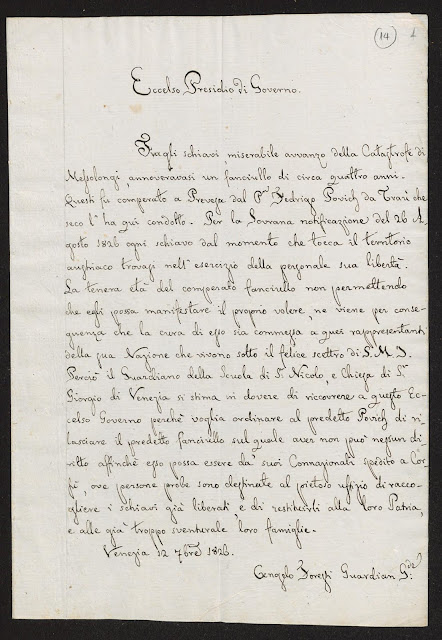 14 1
Eccelso Presidio di Governo.
Fra gli schiavi, miserabile avvanzo della Catastrofe di
Messolongi, annoveravasi un fanciullo di circa quattro anni.
Questi fu comperato a Prevesa dal Pn Fedrigo Povich da Traù che
seco l'ha qui condotto. Per la Sovrana notificazione del 26 A-
gosto 1826 ogni schiavo dal momento che tocca il territorio
austriaco trovasi nell'esercizio della personale sua libertà.
La tenera età del comperato fanciullo non permettendo
che egli possa manifestare il proprio volere, ne viene per conse-
guenza che la cura di esso sia commessa a quei rappresentanti
della sua Nazione che vivono sotto il felice scettro di S. M. I.
Perciò il Guardiano della Scuola di S. Nicolo, e Chiesa di Sn
Giorgio di Venezia si stima in dovere di ricorrere a questo Ec-
celso Governo perchè voglia ordinare al predetto Povich di ri-
lasciare il predetto fanciullo sul quale aver non può nessun di-
ritto affinchè esso possa essere da' suoi Connazionali spedito a Cor-
fù, ove persone probe sono destinate al pietoso uffizio di racco-
gliere i schiavi già liberati, e di restituirli alla loro Patria,
e alle già troppo sventurate loro famiglie.
Venezia 12 7bre 1826.
Angelo Guardian